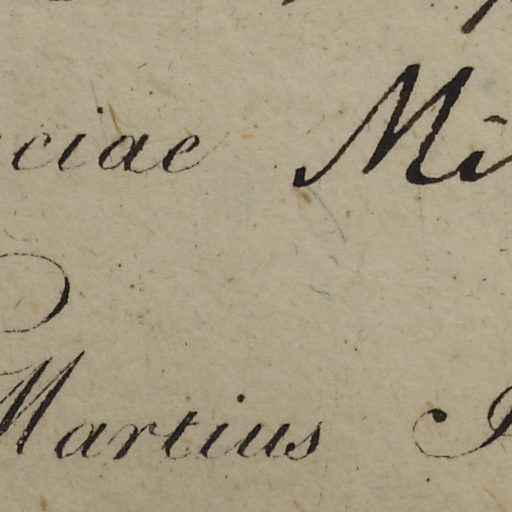 ciae Mi
Martius